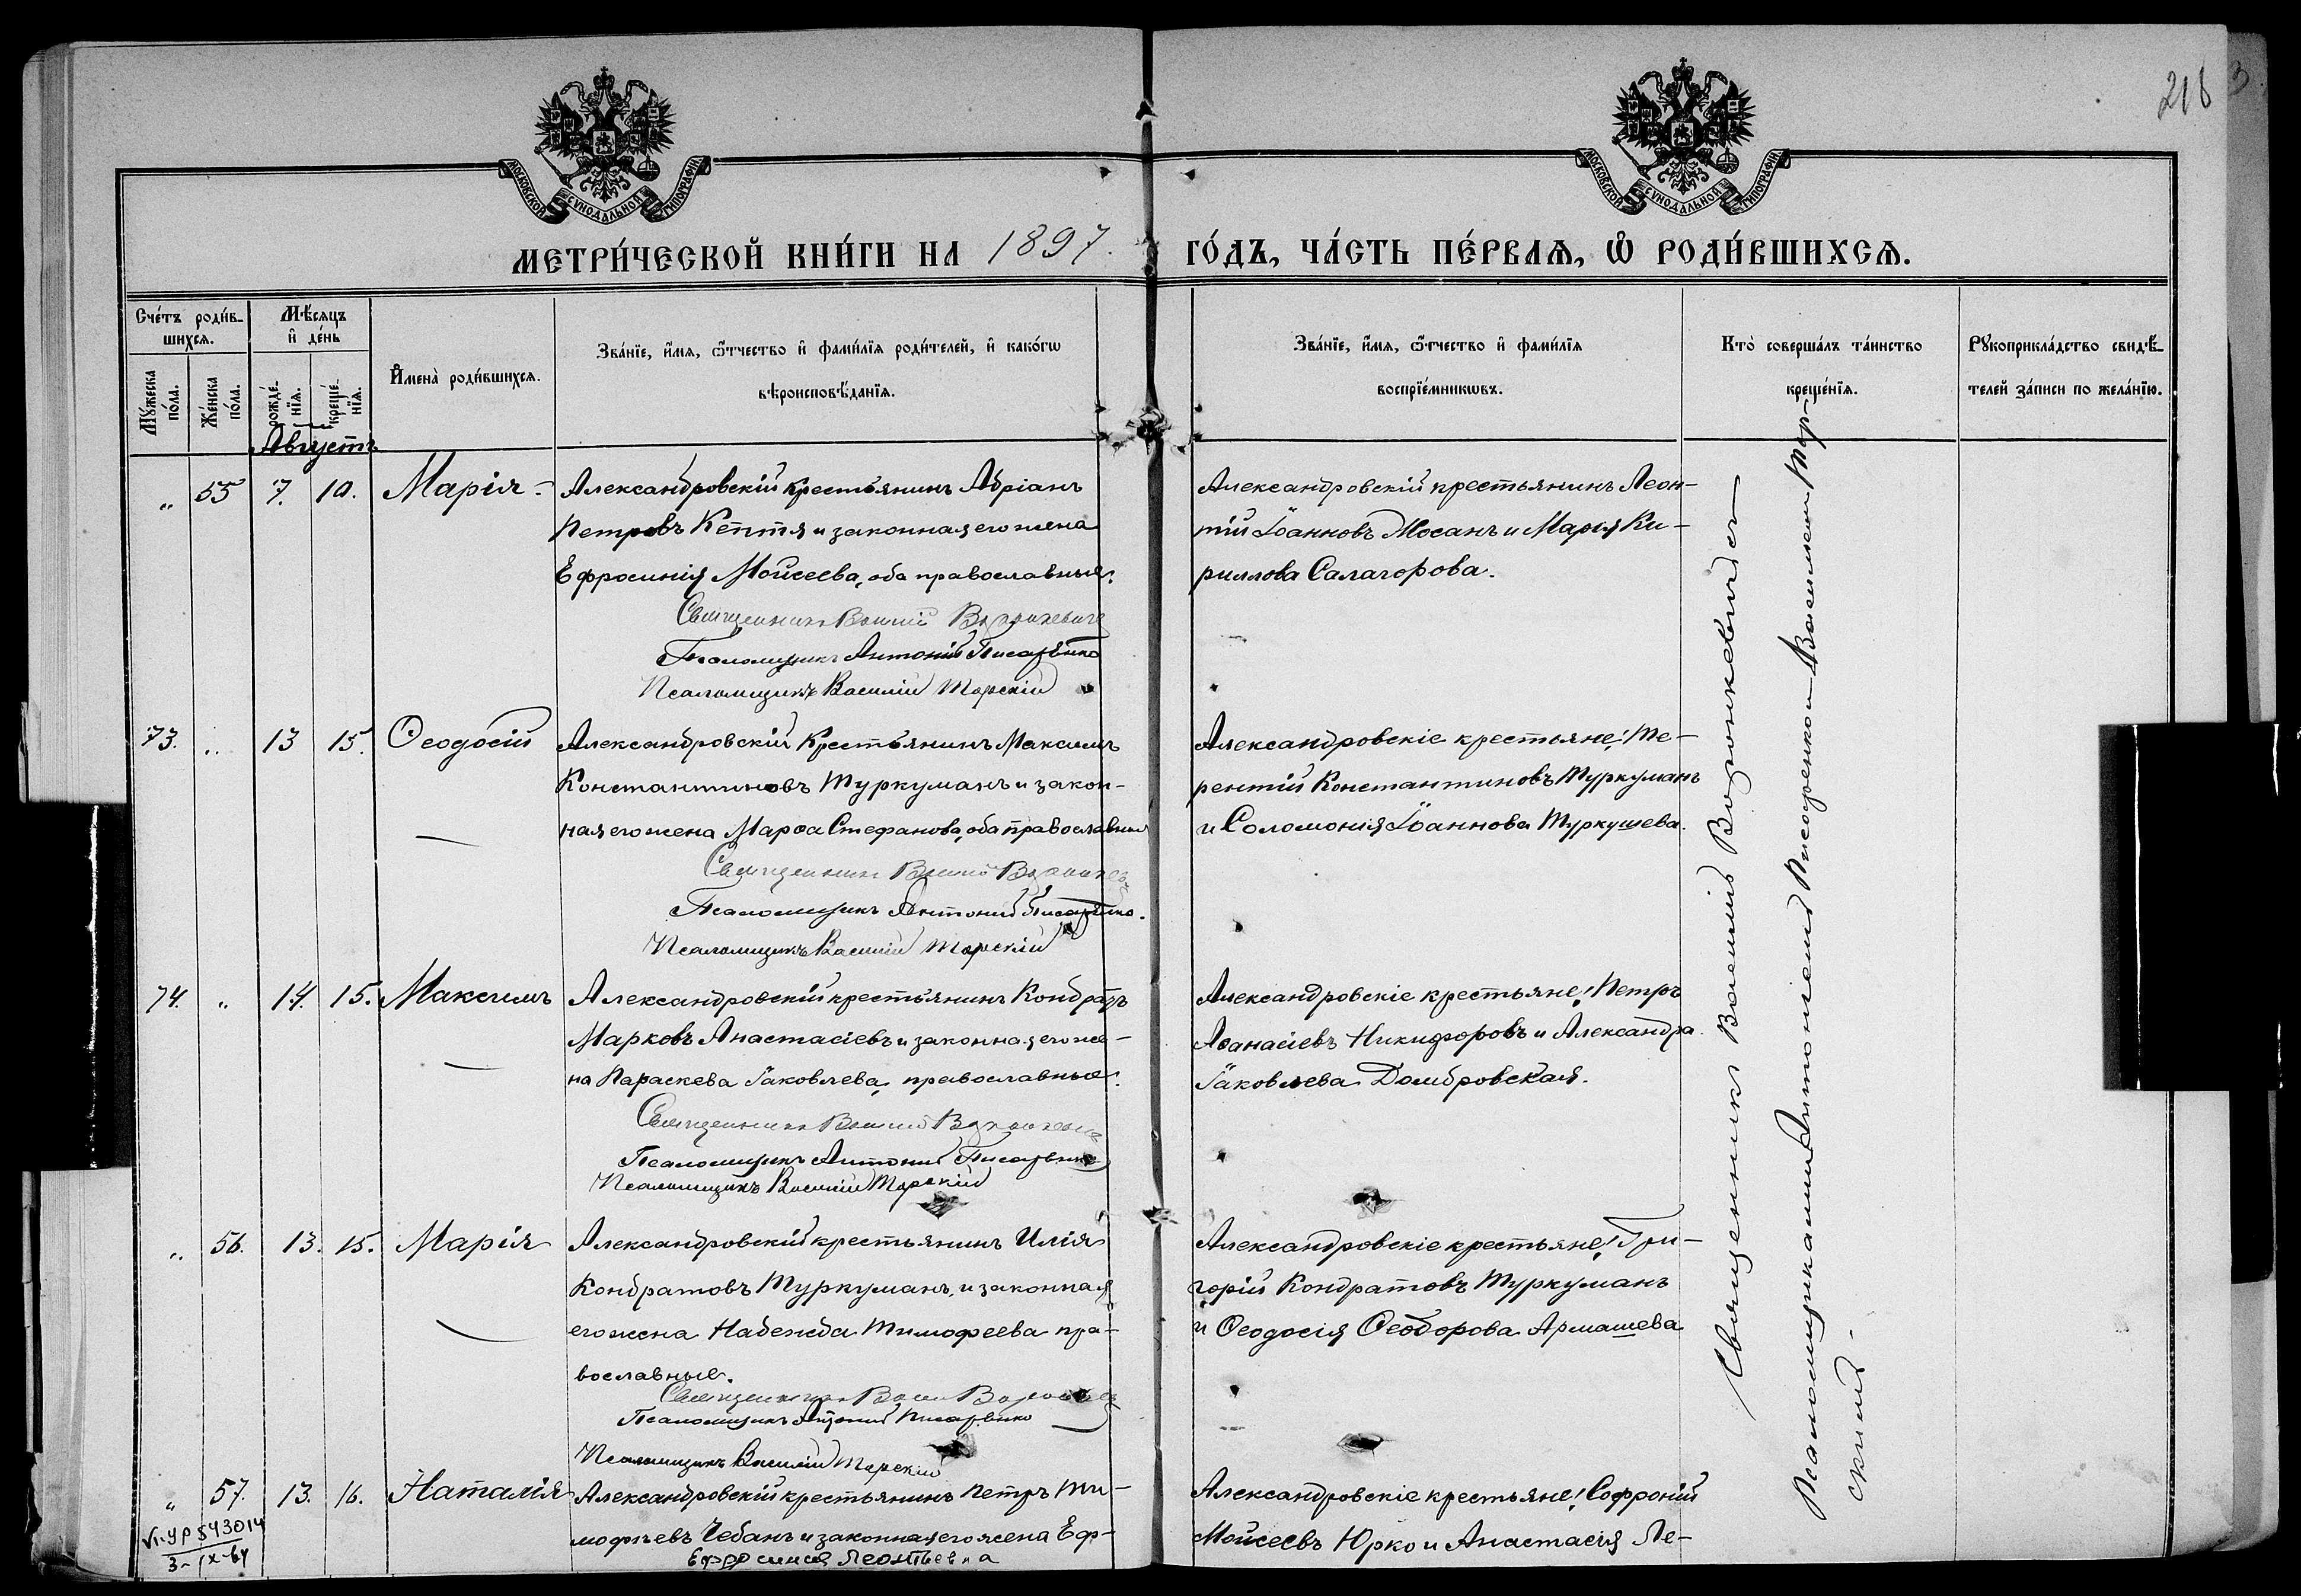 216
МОСКОВСКОЙ СѴНОДАЛЬНОЙ ТИПОГРАФІИ
МОСКОВСКОЙ СѴНОДАЛЬНОЙ ТИПОГРАФІИ
МЕТРИ́ЧЕСКОЙ КНИ́ГИ НА 1897. ГО́ДЪ, ЧА́СТЬ ПЕ́РВАѦ, Ѡ҆ РОДИ́ВШИХСѦ.
Сче́тъ роди́в-
шихсѧ.
Мꙋ́жеска
по́ла.
Же́нска
по́ла.
Мѣ́сяцъ
и҆ де́нь
рожде́-
нїѧ.
креще́-
нїѧ.
И҆мена̀ роди́вшихсѧ.
Зва́нїе, и҆́мѧ, ѻ҆́тчество и҆ фами́лїѧ роди́телей, и҆ како́гѡ
вѣроисповѣ́данїѧ.
Зва́нїе, и҆́мѧ, ѻ҆́тчество и҆ фами́лїѧ
воспрїе́мникѡвъ.
Кто̀ соверша́лъ та́инство
креще́нїѧ.
Рꙋкоприкла́дство свидѣ́-
телей за́писи по жела́нїю.
Августъ
„ 55 7. 10. Марія.
Александровскій крестьянинъ Адріанъ
Петровъ Кептя и законная его жена
Ефросинія Моисеева, оба православные.
Священникъ Василій Воронкевичъ
Псаломщикъ Антоній Писаренко
Псаломщикъ Василій Торскій
Александровскій крестьянинъ Леон-
тій Іоанновъ Мосанъ и Марія Ки-
риллова Салагорова.
73. „ 13 15. Ѳеодосій
Александровскій Крестьянинъ Максимъ
Константиновъ Туркуманъ и закон-
ная его жена Марѳа Стефанова, оба православные
Священникъ Василій
Псаломщикъ Антоній Писаренко.
Псаломщикъ Василій Торскій
Александровскіе крестьяне: Те-
рентій Константиновъ Туркуманъ
и Соломонія Іоаннова Туркушева.
74. „ 14. 15. Максимъ
Александровскій крестьянинъ Кондратъ
Марковъ Анастасіевъ и законная его же-
на Параскева Іаковлева, православные.
Священникъ Василій
Псаломщикъ Антоній Писаренко
Псаломщикъ Василій Торскій
Александровскіе крестьяне: Петръ
Аѳанасіевъ Никифоровъ и Александра
Іаковлева Домбровская.
„ 56. 13. 15. Марія
Александровскій крестьянинъ Илія
Кондратовъ Туркуманъ, и законная
его жена Надежда Тимофеева пра-
вославные.
Священникъ
Псаломщикъ Антоній Писаренко
Псаломщикъ Василій Торскій
Александровскіе крестьяне: Гри-
горій Кондратовъ Туркуманъ
и Ѳеодосія Ѳеодорова Армашева
„ 57. 13. 16. Наталія
Александровскій крестьянинъ Петръ Ти-
мофѣевъ Чебанъ и законная его жена Еф-
Ефросиния Леонтьевна
Александровскіе крестьяне: Софроній
Моисеевъ Юрко и Анастасія Ле-
543014
3-IX-64
Священникъ Василій Воронкевичъ съ
Псаломщиками Антоніемъ Писаренко и Василіемъ Тор-
скимъ.